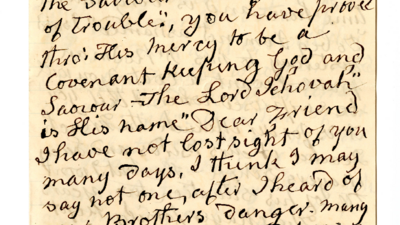 the Saviour
of Trouble", you have prove
thro: His mercy to be a
Covenant Keeping God and
Saviour - The Lord Jehovah"
is His name" Dear Friend
I have not lost sight of you
many days, I think I may
say not one, after I heard of
Brothers danger. many